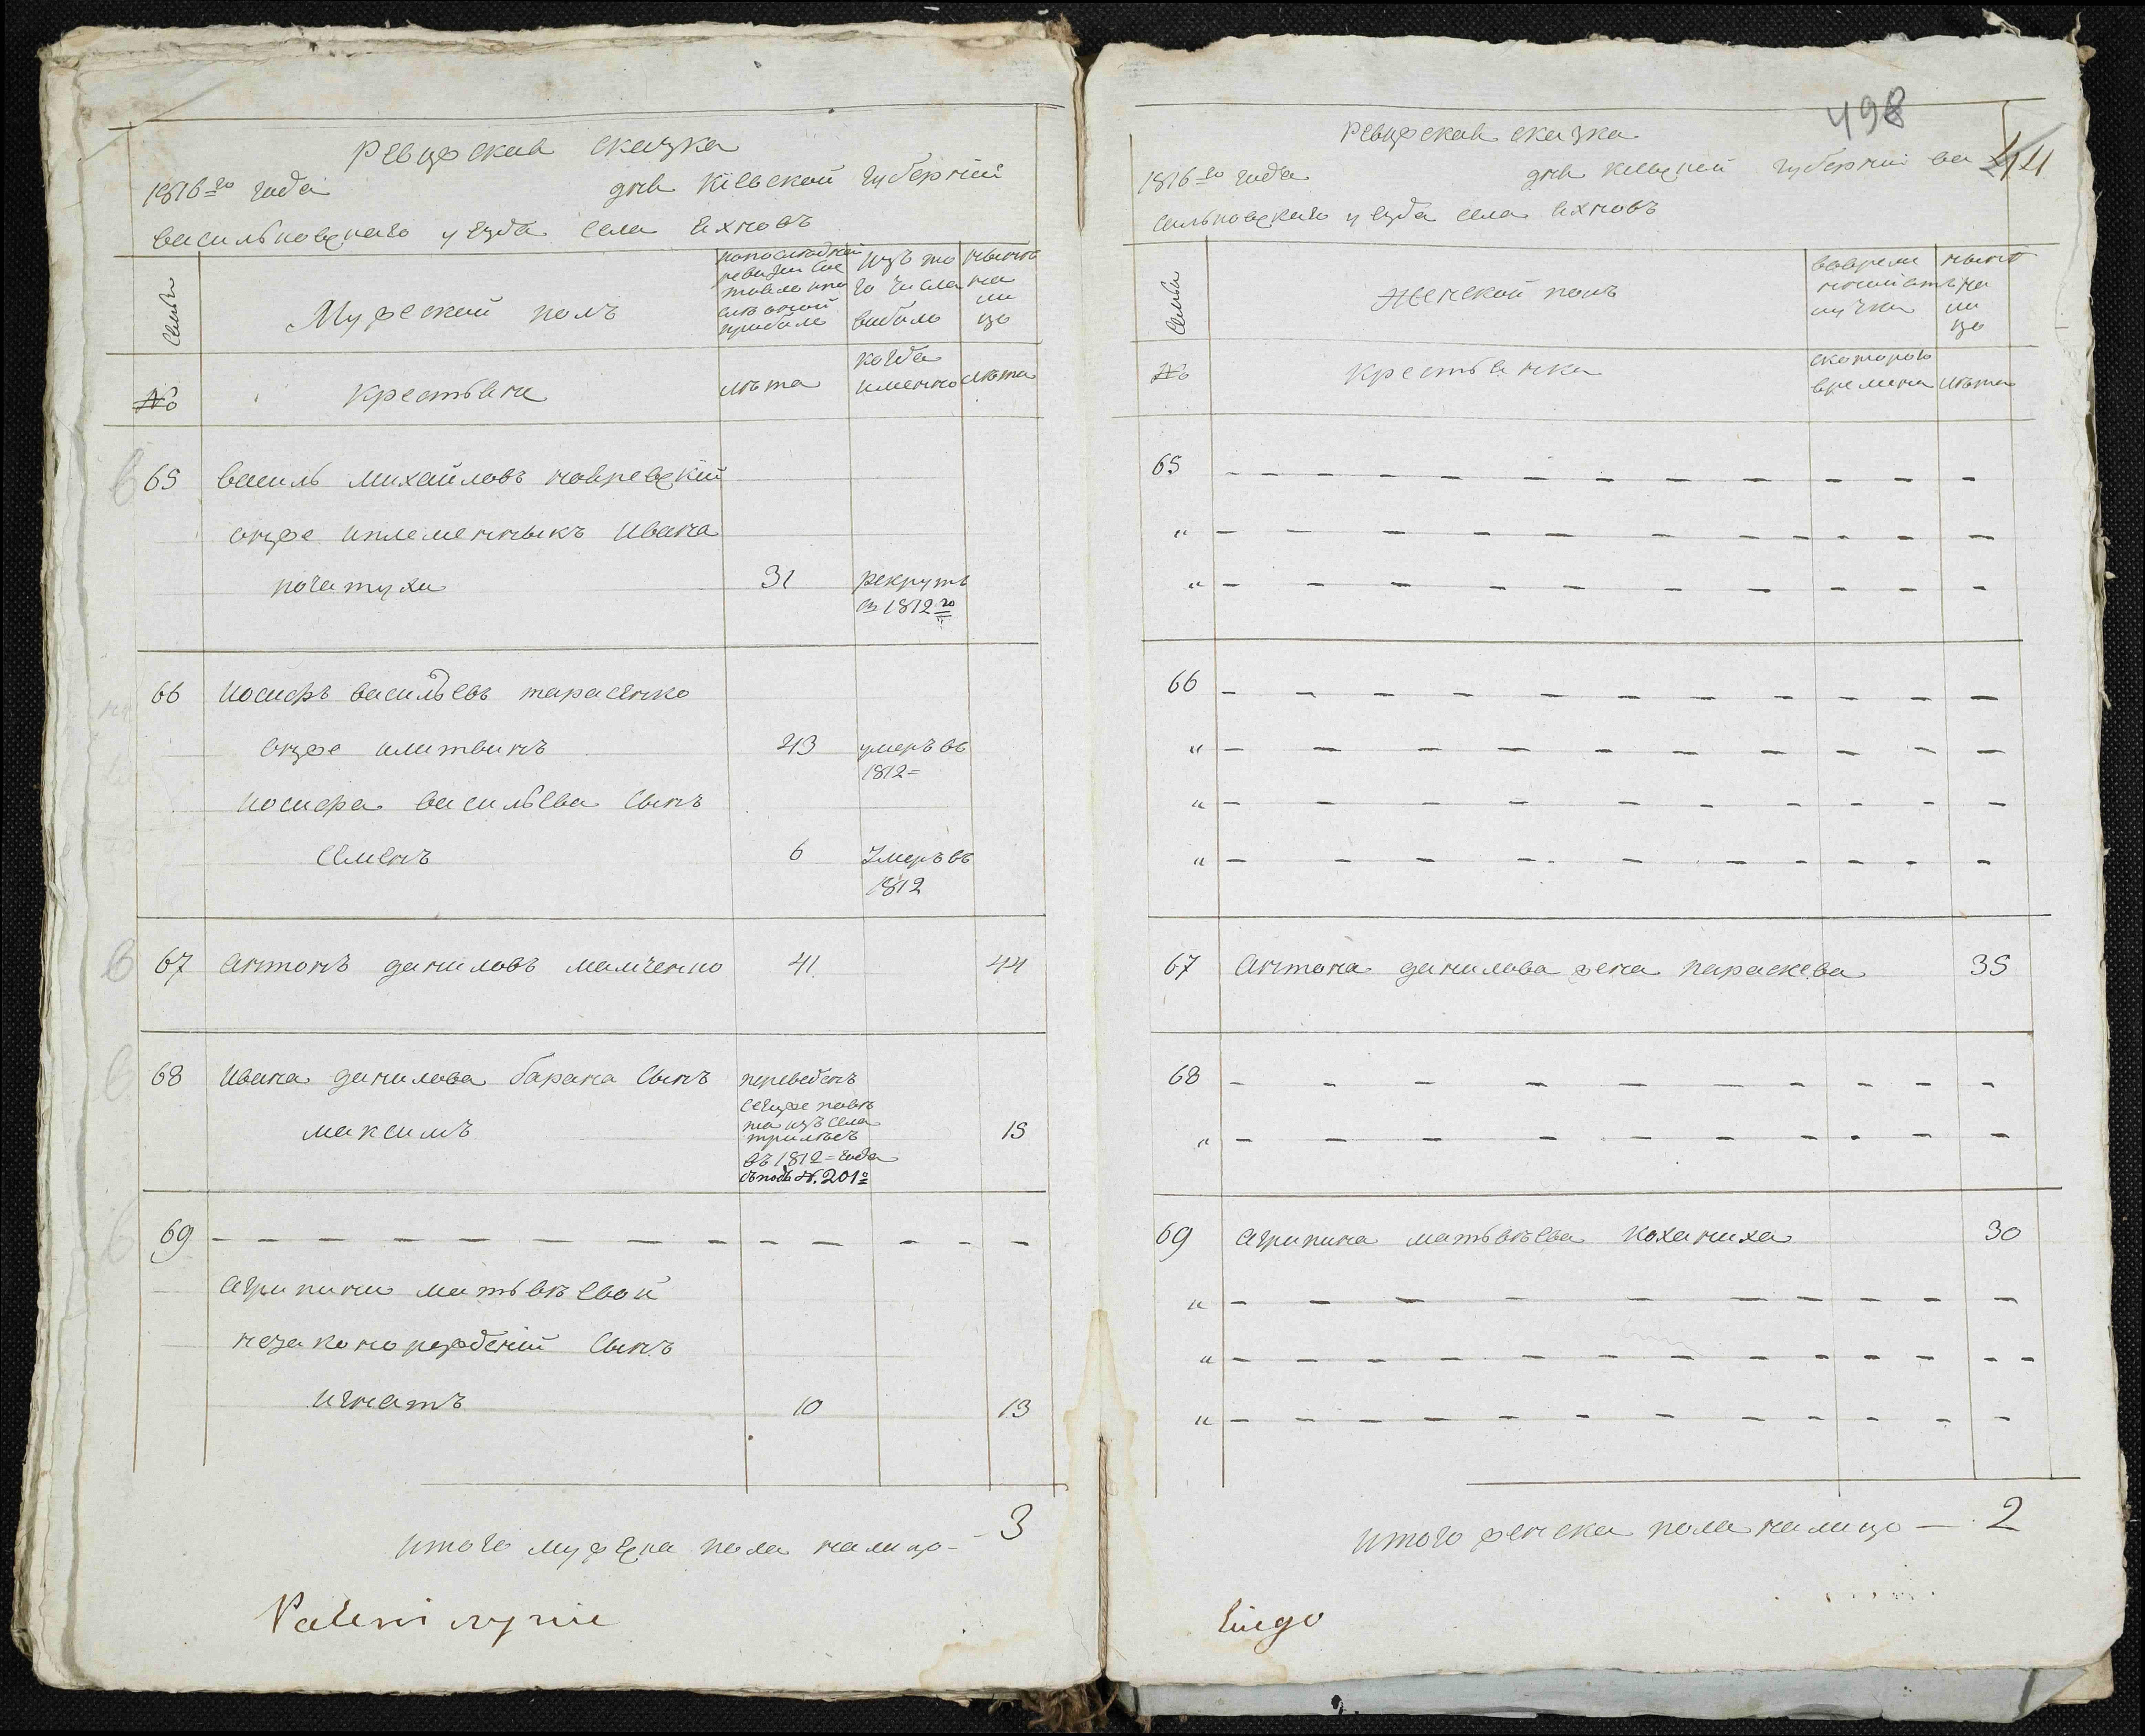 Ревизская сказка
1816го года дня Кіевской губерніи
васильковскаго уезда села Яхновъ
Семьи
Мужеской полъ
попоследней
ревизіи сос
тояло и по
слѣ оной
прибыло
изъ то
го числа
выбыло
нынѣ
на
ли
цо
№
крестьяне
лѣта
когда
именно
лѣта
65 василь михайловъ
онже иплеменныкъ ивана
31 рекрутъ
въ 1812го
66 иосифъ васильевъ тарасенко
онже литвинъ 43 умеръ въ
1812
иосифа васильева сынъ
семенъ 6 умеръ въ
1812
67 антонъ даниловъ мамченко 41 44
68 ивана данилова барана сынъ переведенъ
сегоже повѣ
та изъ села
трилѣсъ
въ 1812 года
съ подъ №. 201о
максимъ 15
69 — — — — — — — — — — — —
агрипини матвѣевой
незаконорожденій сынъ
игнатъ 10 13
итого мужеска пола налицо - 3
498
44
Ревизская сказка
1816го года дня Кіевской губерніи ва
сильковскаго уезда села Яхновъ
Семьи
Женской полъ
вовреми
нной отъ
лучки
нынѣ
на
ли
цо
№
крестьянки
скоторого
времени
лѣта
65 — — — — — — — — — — —
" — — — — — — — — — — —
" — — — — — — — — — —
66 — — — — — — — — — — —
" — — — — — — — — — —
" — — — — — — — — — —
" — — — — — — — — — —
67 антона данилова жена параскева 35
68 — — — — — — — — — —
" — — — — — — — — — —
69 агрипина матвѣева коханиха 30
" — — — — — — — — — —
" — — — — — — — — — — — — —
" — — — — — — — — — — — —
итого женска пола налицо — 2